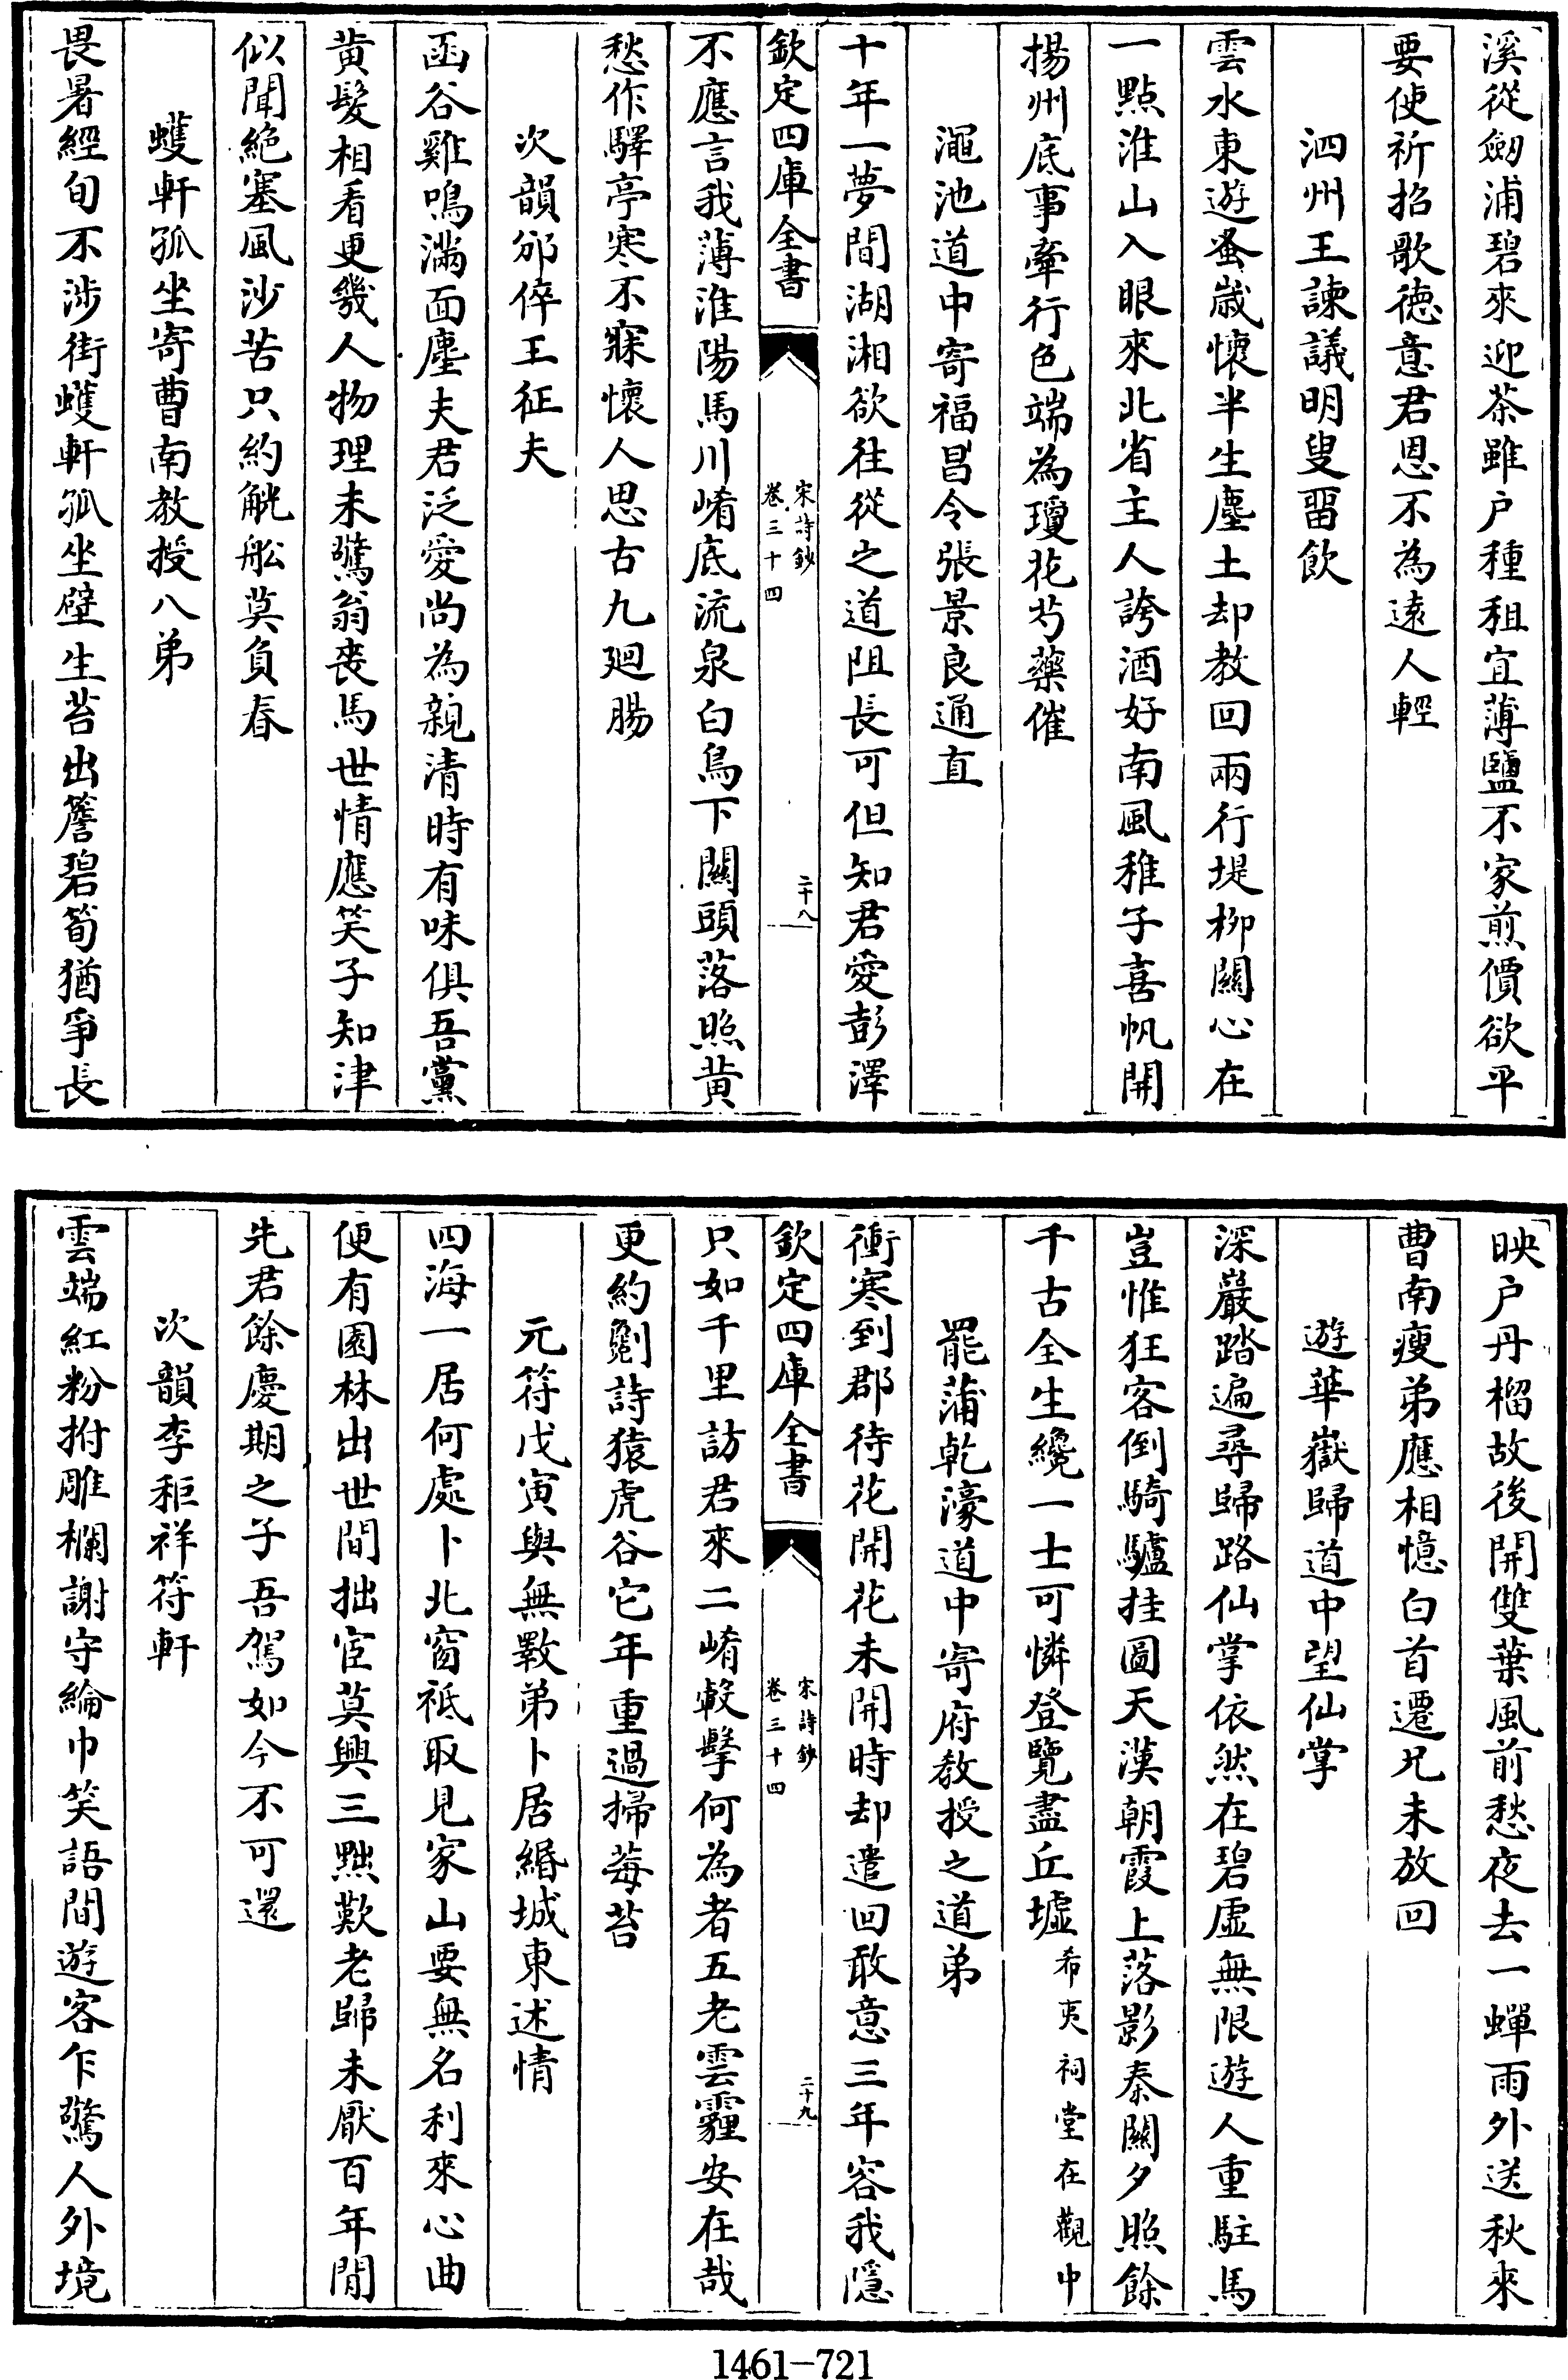 溪從劒浦碧來迎茶雖户種租宜薄鹽不家煎價欲平
要使祈招歌徳意君恩不為遠人輕
泗州王諫議明叟留飲
雲水東遊蚤嵗懷半生塵土却教回兩行堤柳關心在
一點淮山入眼來北省主人誇酒好南風稚子喜帆開
揚州底事牽行色端為瓊花芍藥催
澠池道中寄福昌令張景良通直
十年一夢間湖湘欲往從之道阻長可但知君愛彭澤
欽定四庫全書
宋詩鈔
卷三十四
二十八
不應言我薄淮陽馬川崤底流泉白鳥下關頭落照黄
愁作驛亭寒不寐懷人思古九廻腸
次韻邠倅王征夫
函谷雞鳴滿面塵夫君泛愛尚為親清時有味俱吾黨
黄髮相看更幾人物理未驚翁喪馬世情應笑子知津
似聞絶塞風沙苦只約觥船莫負春
蠖軒孤坐寄曹南教授八弟
畏暑經旬不涉街蠖軒孤坐壁生苔出簷碧筍猶爭長
映户丹榴故後開雙葉風前愁夜去一蟬雨外送秋來
曹南瘦弟應相憶白首遷兄未放回
遊華嶽歸道中望仙掌
深巖踏遍尋歸路仙掌依然在碧虚無限遊人重駐馬
豈惟狂客倒騎驢挂圖天漢朝霞上落影秦關夕照餘
千古全生纔一士可憐登覽盡丘墟希夷祠堂在觀中
罷蒲乾濠道中寄府教授之道弟
衝寒到郡待花開花未開時却遣回敢意三年容我隱
欽定四庫全書
宋詩鈔
卷三十四
二十九
只如千里訪君來二崤轂擊何為者五老雲霾安在哉
更約劖詩猿虎谷它年重過掃莓苔
元符戊寅與無斁弟卜居緡城東述情
四海一居何處卜北窗祗取見家山要無名利來心曲
便有園林出世間拙宦莫興三黜歎老歸未厭百年閒
先君餘慶期之子吾駕如今不可還
次韻李秬祥符軒
雲端紅粉拊雕欄謝守綸巾笑語間遊客乍驚人外境
1461-721